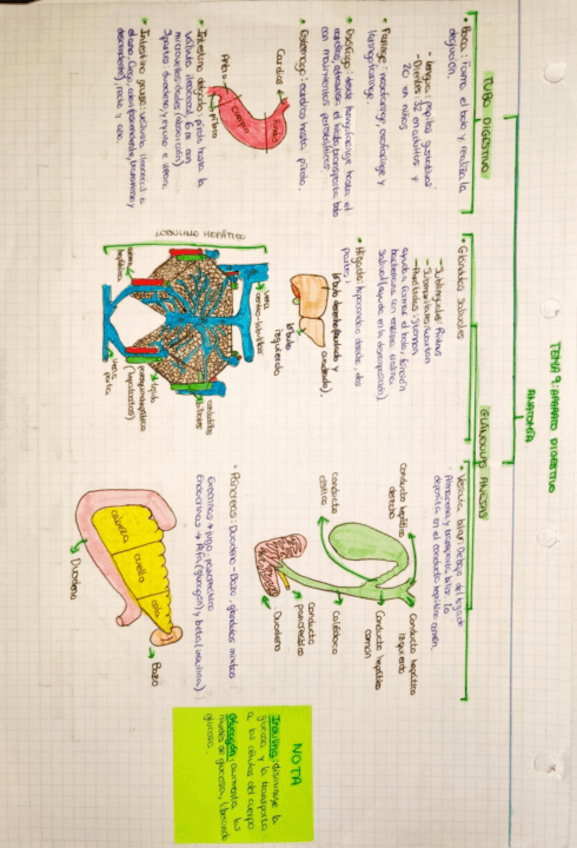 TEMA 9: APARATO DIGESTIVO
ANATOMÍA
TUBO DIGESTIVO
• Boca: forma el bolo y realiza la
deglución.
- Lengua: papilas gustativas
- Dientes: 32 en adultos y
20 en niños
• Faringe: nasofaringe, orofaringe y
laringofaringe.
• Esófago: desde laringofaringe hasta el
cardias, atraviesa el
con movimientos peristálticos.
• Estómago: cardias hasta píloro.
Cardias
Fundus
cuerpo
Antro
píloro
• Intestino delgado: píloro hasta la
válvula ileocecal, 6m con
microvellosidades (absorción)
3 partes: duodeno, yeyuno e íleon.
• Intestino grueso: válvula ileocecal a
el ano. Ciego, colon (ascendente, transverso y
descendente), recto y ano.
GLÁNDULAS ANEJAS
• Glándulas salivales
- Sublinguales: Rivinus
- Submaxilares: Warton
- Parótidas: Stenon
ayuda a formar el bolo, función
bactericida con enzima
salival (ayuda en la descomposición)
• Hígado: hipocondrio derecho, dos
partes:
lóbulo derecho (cuadrado y
caudado),
lóbulo
izquierdo
LOBULILLO HEPÁTICO
vena
centro-lobulillar
arteria
hepática
conductos
biliares
tejido
parenquimatoso
(hepatocitos)
vena
porta
• Vesícula biliar: Debajo del hígado
Almacena y transporta bilis lo
deposita en el conducto hepático común.
Conducto hepático
derecho
Conducto hepático
izquierdo
Conducto hepático
común
conducto
cístico
Colédoco
conducto
pancreático
Duodeno
• Páncreas: Duodeno - Bazo, glándulas mixtas
Exocrinas → jugo pancreático
Endocrinas → Alfa (glucagón) y beta (insulina)
cabeza
cuello
cola
Bazo
Duodeno
NOTA
Insulina: disminuye la
glucosa y la transporta
a las células del cuerpo
Glucagón: aumenta los
niveles de glucosa, liberando
glucosa.